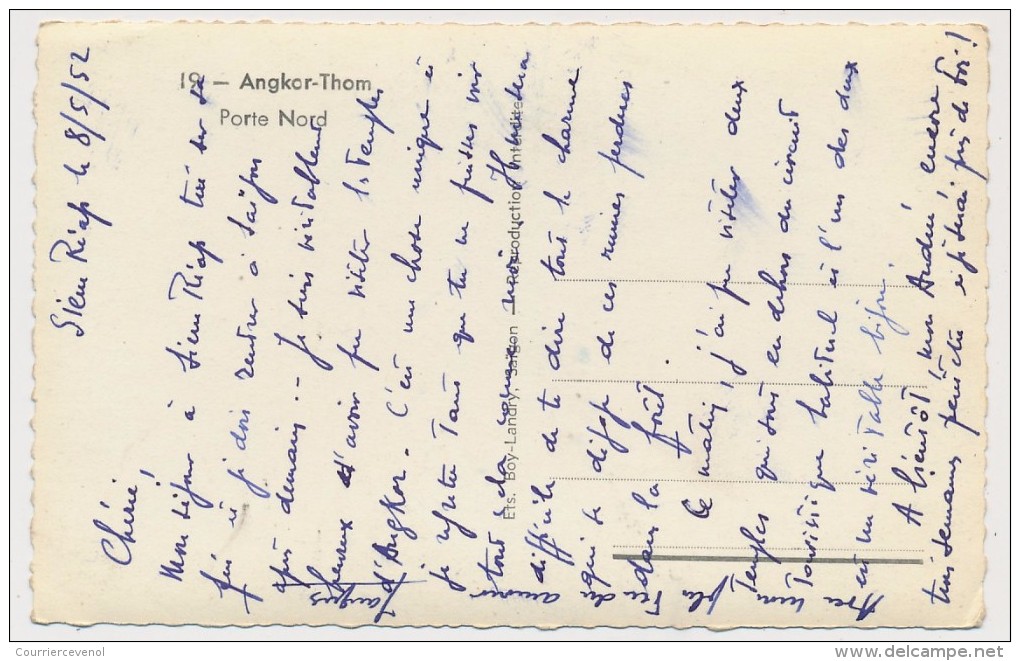 19 — Angkor-Thom
Porte Nord
Ets. Boy-Landry, Saïgon — Reproduction Interdite
Siem Réap le 8/5/52
Chérie!
Mon séjour à Siem Réap tire sur sa
fin et je dois rentrer à Saïgon
après demain.- Je suis véritablement
heureux d'avoir pu visiter les temples
d'Angkor. C'est une chose unique et
je regrette tant que tu ne puisses voir
tout de même Il me sera
difficile de te dire tout le charme
qui se dégage de ces ruines perdues
dans la forêt.
Ce matin, j'ai pu visiter deux
temples qui sont en dehors du circuit
touristique habituel et l'un des deux
est un véritable bijou!
A bientôt! mon André encore
trois semaines peut-être et je serai près de toi!
amour